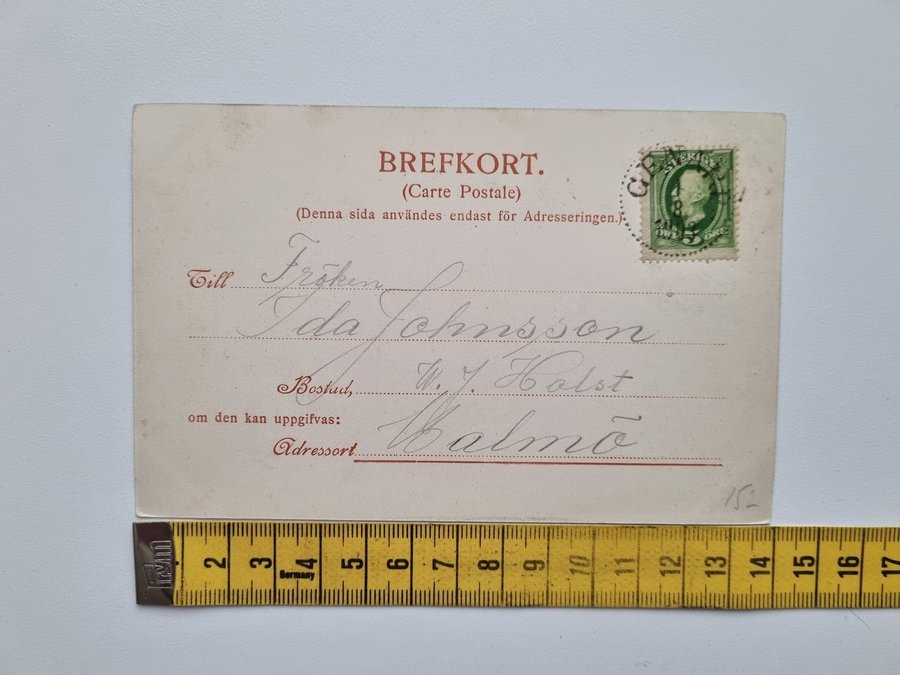 BREFKORT.
(Carte Postale)
(Denna sida användes endast för Adresseringen.)
SVERIGE
8
5
Till Fröken
Ida Johnsson
Bostad, W. J. Holst
om den kan uppgifvas:
Adressort Malmö
15-
2 3 4 5 6 7 8 9 10 11 12 13 14 15 16 17
Germany